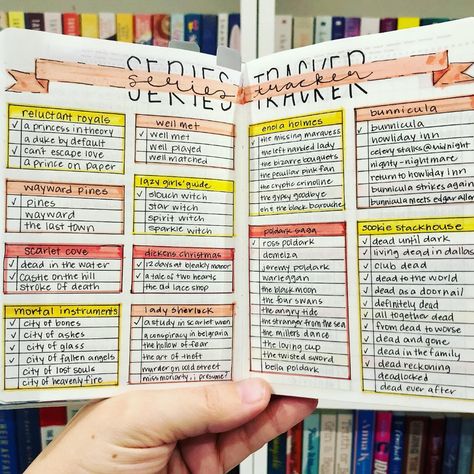 SERIES
series
TRACKER
tracker
reluctant royals
✓ a princess in theory
✓ a duke by default
✓ can't escape love
a prince on paper
wayward pines
✓ pines
wayward
the last town
scarlet cove
✓ dead in the water
✓ castle on the hill
✓ stroke of death
mortal instruments
✓ city of bones
✓ city of ashes
✓ city of glass
✓ city of fallen angels
city of lost souls
city of heavenly fire
well met
✓ well met
well played
well matched
lazy girls' guide
✓ slouch witch
star witch
spirit witch
sparkle witch
dickens christmas
✓ 12 days at bleakly manor
✓ a tale of two hearts
the old lace shop
lady sherlock
✓ a study in scarlet women
a conspiracy in belgravia
the hollow of fear
the art of theft
murder on cold street
miss moriarty, i presume?
enola holmes
✓ the missing marquess
✓ the left handed lady
✓ the bizarre bouquets
✓ the peculiar pink fan
✓ the cryptic crinoline
✓ the gypsy goodbye
✓ eh & the black barouche
poldark saga
✓ ross poldark
✓ demelza
✓ jeremy poldark
✓ warleggan
✓ the black moon
✓ the four swans
✓ the angry tide
✓ the stranger from the sea
✓ the millers dance
✓ the loving cup
✓ the twisted sword
bella poldark
bunnicula
✓ bunnicula
✓ howliday inn
celery stalks @ midnight
nighty-nightmare
return to howliday inn
bunnicula strikes again
bunnicula meets edgar allen
sookie stackhouse
✓ dead until dark
✓ living dead in dallas
✓ club dead
✓ dead to the world
✓ dead as a doornail
✓ definitely dead
✓ all together dead
✓ from dead to worse
✓ dead and gone
✓ dead in the family
✓ dead reckoning
deadlocked
dead ever after